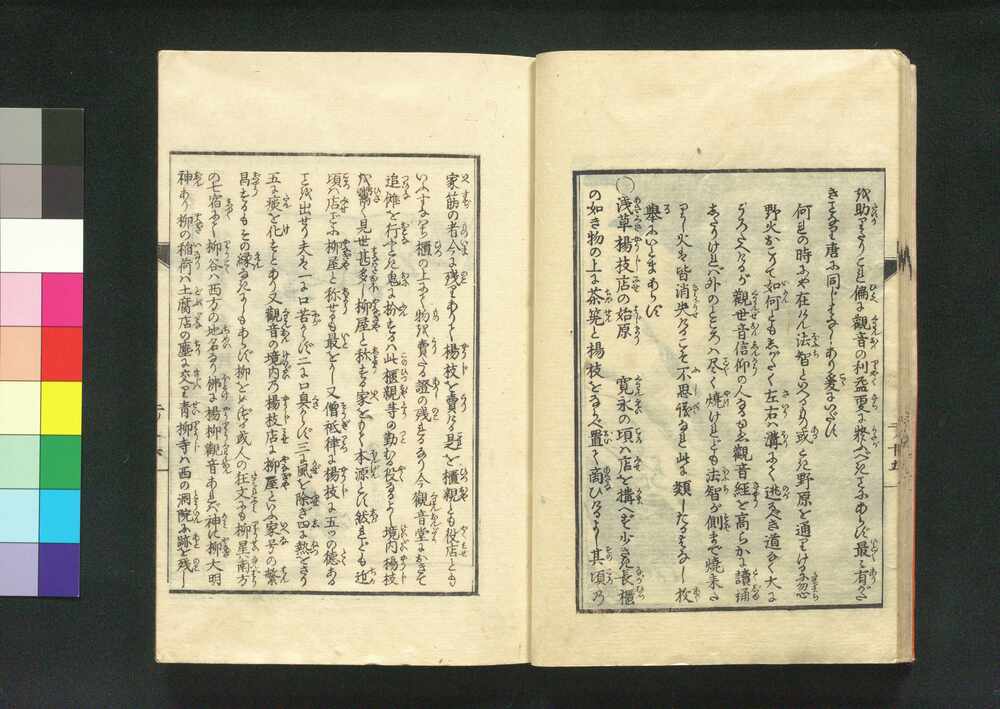 を助るうこれ偏に観音の利益更に疑ふべきにあらず最々有がた
き事なり唐に同じはなしあり爰にいだす
何れの時にや在けん法智といへるもの或とき野原を通りける忽
野火おこりて如何ともしがたく左右は溝にて逃べき道なく大に
うろたへたるが観世音信仰の人なるゆゑ観音経を高らかに読誦
しさうけれバ外のところハ尽く焼けれども法智が側まで焼来た
りし火も皆消失たるこそ不思儀なれ此に類したるはなし枚
挙にいとまあらず
○浅草楊枝店の始原 寛永の頃ハ店を構へず少さき長櫃
の如き物の上に茶筅と楊枝をならべ置て商ひたるよし其頃の
家筋の者今に残りありて楊枝を売る是を櫃親とも役店とも
いふすなわち櫃の上にて物を売たる證の残れるなり今観音堂において
追儺を行ふとき鬼に扮するハ此櫃親等の勤る役なるよし境内楊枝
を鬻く見世甚多し柳屋と称する家をもて本源とす然れども近
頃ハ店ごとに柳屋と称せるも最をかし又僧祇律に楊枝に五つの徳ある
ことを出せり夫は一に口苦からず二に口臭からず三に風を除き四に熱をさり
五に痰を化すとあり又観音の境内の楊枝店に柳屋といふ家号の繁
昌するもその縁なきにもあらず柳をめづる或人の狂文にも柳星ハ南方
の七宿にて柳谷ハ西方の地名なり佛に楊柳観音あれバ神に柳大明
神あり柳の稲荷ハ土腐店の塵に交り青柳寺ハ西の洞院に跡を残し